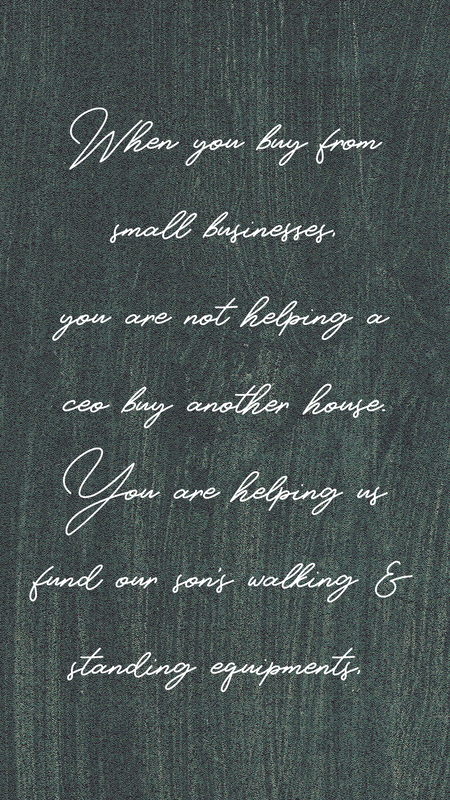 When you buy from
small businesses,
you are not helping a
ceo buy another house.
You are helping us
fund our son's walking &
standing equipments.